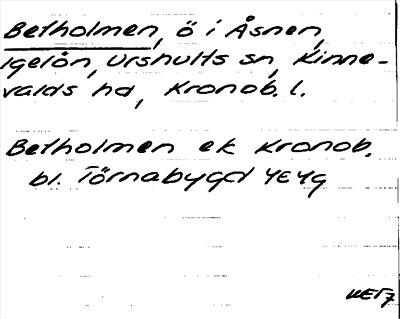 Betholmen, ö i Åsnen,
Igelön, Urshults sn, Kinne-
valds hd, Kronob. l.
Betholmen ek Kronob.
bl. Törnabygd 4E4g